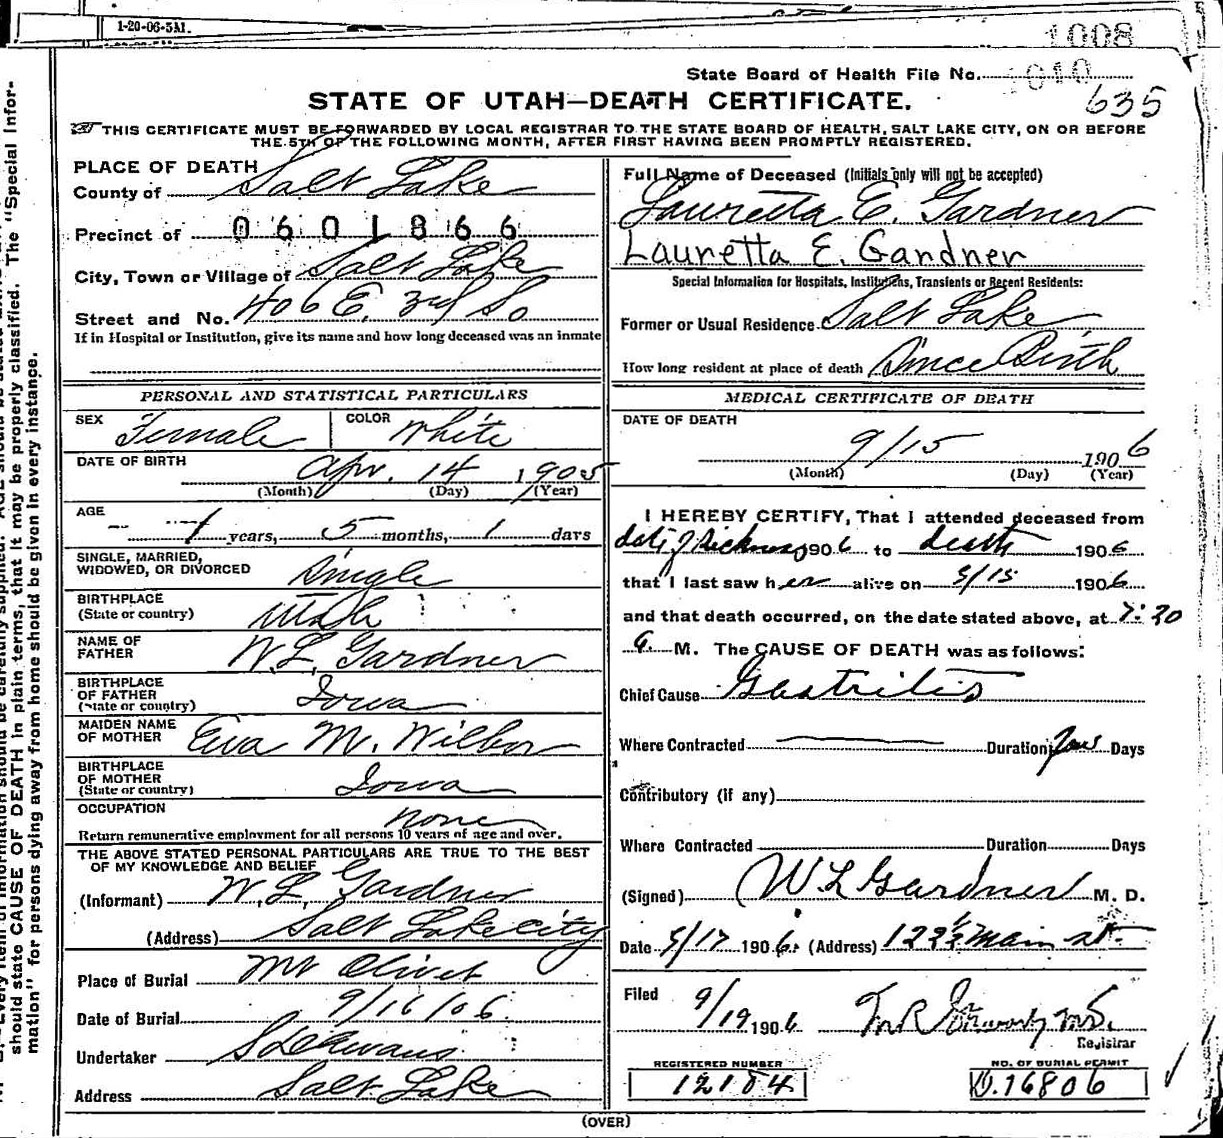 1-20-06-5M.
1008
State Board of Health File No. 1010
635
STATE OF UTAH—DEATH CERTIFICATE.
THIS CERTIFICATE MUST BE FORWARDED BY LOCAL REGISTRAR TO THE STATE BOARD OF HEALTH, SALT LAKE CITY, ON OR BEFORE
THE 5TH OF THE FOLLOWING MONTH, AFTER FIRST HAVING BEEN PROMPTLY REGISTERED.
PLACE OF DEATH
County of Salt Lake
Precinct of 0601866
City, Town or Village of Salt Lake
Street and No. 406 E. 3rd So
If in Hospital or Institution, give its name and how long deceased was an inmate
PERSONAL AND STATISTICAL PARTICULARS
SEX Female COLOR White
DATE OF BIRTH Apr. 14 1905
(Month) (Day) (Year)
AGE
1 years, 5 months, 1 days
SINGLE, MARRIED,
WIDOWED, OR DIVORCED Single
BIRTHPLACE
(State or country) Utah
NAME OF
FATHER W.L. Gardner
BIRTHPLACE
OF FATHER
(State or country) Iowa
MAIDEN NAME
OF MOTHER Eva M. Wilbor
BIRTHPLACE
OF MOTHER
(State or country) Iowa
OCCUPATION none
Return remunerative employment for all persons 10 years of age and over.
THE ABOVE STATED PERSONAL PARTICULARS ARE TRUE TO THE BEST
OF MY KNOWLEDGE AND BELIEF
(Informant) W. L. Gardner
(Address) Salt Lake City
Place of Burial Mt Olivet
Date of Burial 9/16/06
Undertaker S D Evans
Address Salt Lake
Full Name of Deceased (Initials only will not be accepted)
Lauretta E. Gardner
Lauretta E. Gardner
Special Information for Hospitals, Institutions, Transients or Recent Residents:
Former or Usual Residence Salt Lake
How long resident at place of death Since Birth
MEDICAL CERTIFICATE OF DEATH
DATE OF DEATH
9/15 1906
(Month) (Day) (Year)
I HEREBY CERTIFY, That I attended deceased from
date of sickness 1906 to death 1906
that I last saw her alive on 9/15 1906
and that death occurred, on the date stated above, at 7:30
a. M. The CAUSE OF DEATH was as follows:
Chief Cause Gastritis
Where Contracted Duration few Days
Contributory (if any)
Where Contracted Duration Days
(Signed) W L Gardner M. D.
Date 9/17 1906. (Address) 122 1/2 Main st.
Filed 9/19 1906
Registrar
REGISTERED NUMBER
12184
NO. OF BURIAL PERMIT
D.16806
(OVER)
should state CAUSE OF DEATH in plain terms, that it may be properly classified. The "Special Infor-
mation" for persons dying away from home should be given in every instance.